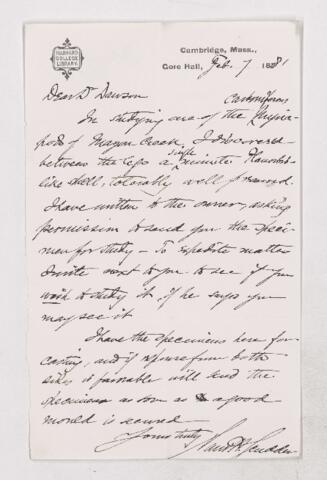 HARVARD
COLLEGE
LIBRARY.
Cambridge, Mass.,
Gore Hall, Feb. 7 1881
Dear Dr Dawson
In studying one of the Carboniferous Myria-
pods of Mazon Creek, I discovered
between the legs a single minute Planorbis-
like shell, tolerably well preserved.
I have written to the owner, asking
permission to send you the speci-
men for study - To expedite matters
I write next to you to see if you
wish to study it, if he says you
may see it
I have the specimens here for
casting, and if response from both
sides is favorable will send the
specimens as soon as a good
mould is secured -
Yours truly
Sam. H. Scudder